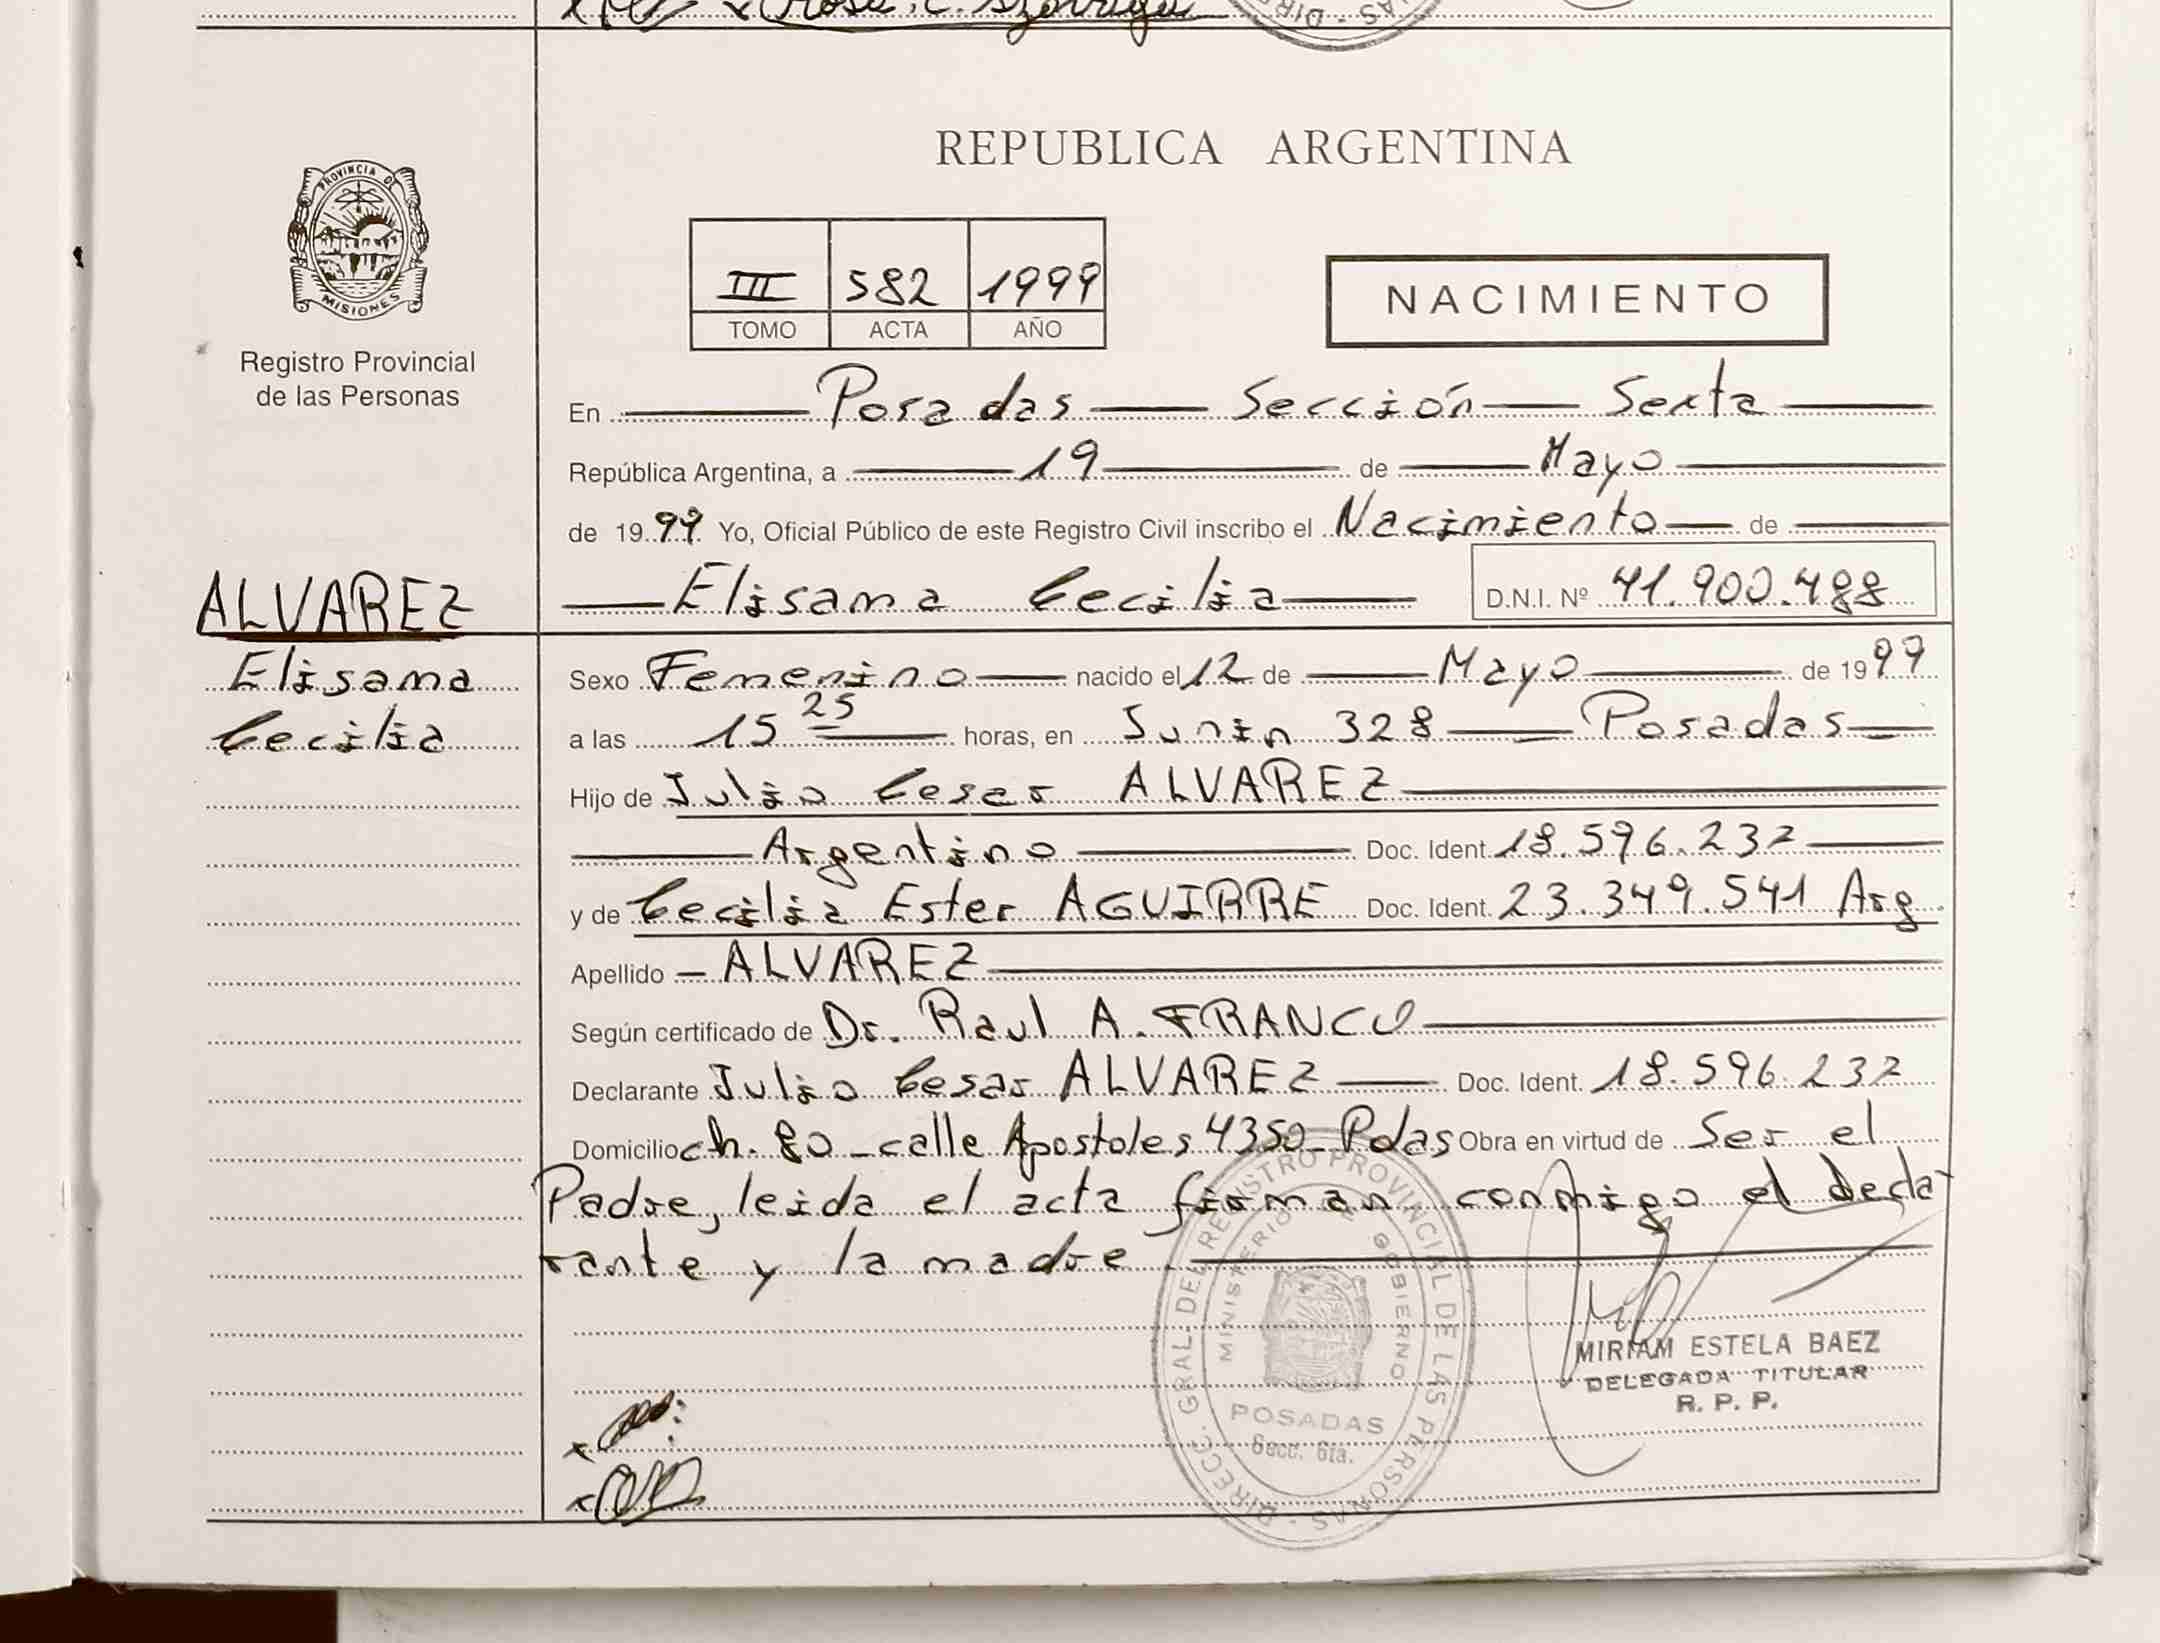 PROVINCIA DE
MISIONES
Registro Provincial
de las Personas
REPUBLICA ARGENTINA
III 582 1999
TOMO ACTA AÑO
NACIMIENTO
En Posadas Sección Sexta
República Argentina, a 19 de Mayo
de 19 99 Yo, Oficial Público de este Registro Civil inscribo el Nacimiento de
Elisama Cecilia D.N.I. Nº 41.900.488
ALVAREZ
Elisama
Cecilia
Sexo Femenino nacido el 12 de Mayo de 19 99
a las 15 25 horas, en Junin 328 Posadas
Hijo de Julio Cesar ALVAREZ
Argentino Doc. Ident. 18.596.232
y de Cecilia Ester AGUIRRE Doc. Ident. 23.349.541 Arg.
Apellido ALVAREZ
Según certificado de Dr. Raul A. FRANCO
Declarante Julio Cesar ALVAREZ Doc. Ident. 18.596.232
Domicilio ch. 80 - calle Apostoles 4350 Pdas Obra en virtud de Ser el
Padre, leida el acta firman conmigo el decla-
rante y la madre
DIRECC. GRAL. DEL REGISTRO PROVINCIAL DE LAS PERSONAS
MINISTERIO DE GOBIERNO
POSADAS
Secc. 6ta.
MIRIAM ESTELA BAEZ
DELEGADA TITULAR
R. P. P.